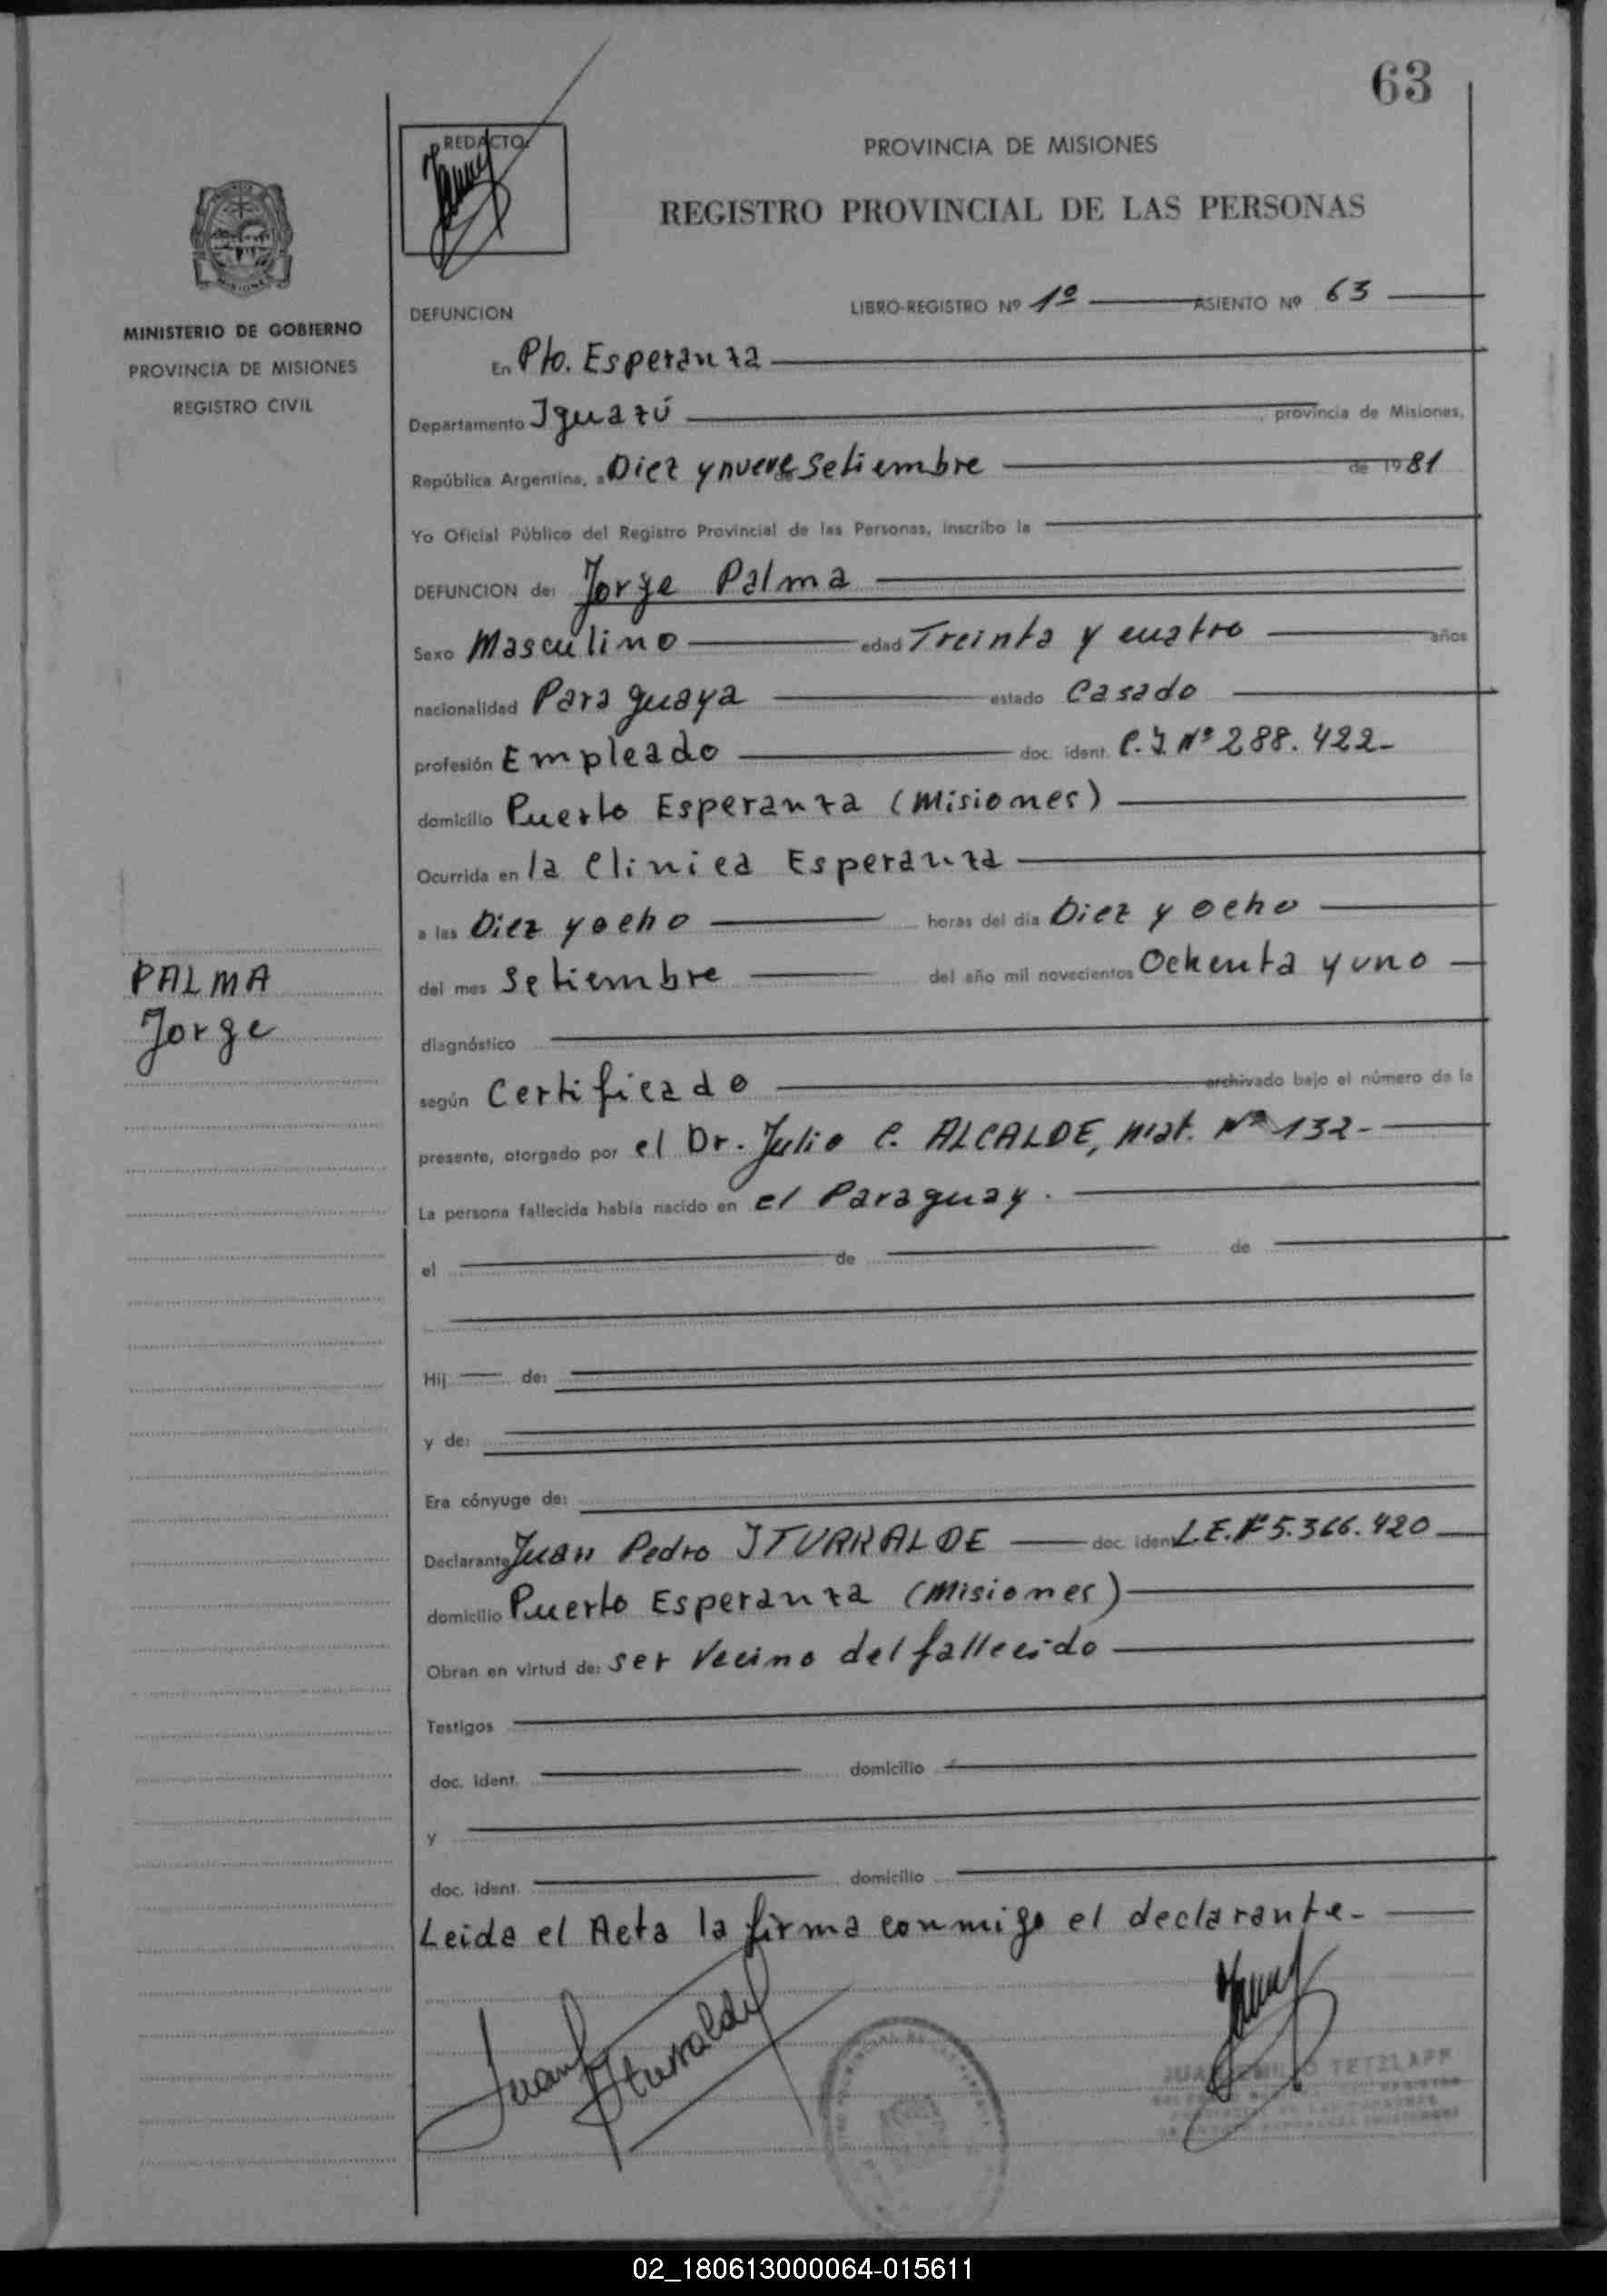 63
REDACTO:
PROVINCIA DE MISIONES
REGISTRO PROVINCIAL DE LAS PERSONAS
MINISTERIO DE GOBIERNO
PROVINCIA DE MISIONES
REGISTRO CIVIL
DEFUNCION LIBRO-REGISTRO Nº 1º ASIENTO Nº 63
En Pto. Esperanza
Departamento Iguazú, provincia de Misiones,
República Argentina, a Diez y nueve de Setiembre de 1981
Yo Oficial Público del Registro Provincial de las Personas, inscribo la
DEFUNCION de: Jorge Palma
Sexo Masculino edad Treinta y cuatro años
nacionalidad Paraguaya estado Casado
profesión Empleado doc. ident. C.I. Nº 288.422-
domicilio Puerto Esperanza (Misiones)
Ocurrida en la Clinica Esperanza
a las Diez y ocho horas del día Diez y ocho
del mes Setiembre del año mil novecientos Ochenta y uno
PALMA
Jorge
diagnóstico
según Certificado archivado bajo el número de la
presente, otorgado por el Dr. Julio C. ALCALDE, Mat. Nº 132-
La persona fallecida había nacido en el Paraguay.
el de de
Hij de:
y de:
Era cónyuge de:
Declarante Juan Pedro ITURRALDE doc. ident. L.E. Nº 5.366.420
domicilio Puerto Esperanza (Misiones)
Obran en virtud de: ser Vecino del fallecido
Testigos
doc. ident. domicilio
y
doc. ident. domicilio
Leida el Acta la firma conmigo el declarante.-
Juan P Iturralde
TETZLAFF
02_180613000064-015611